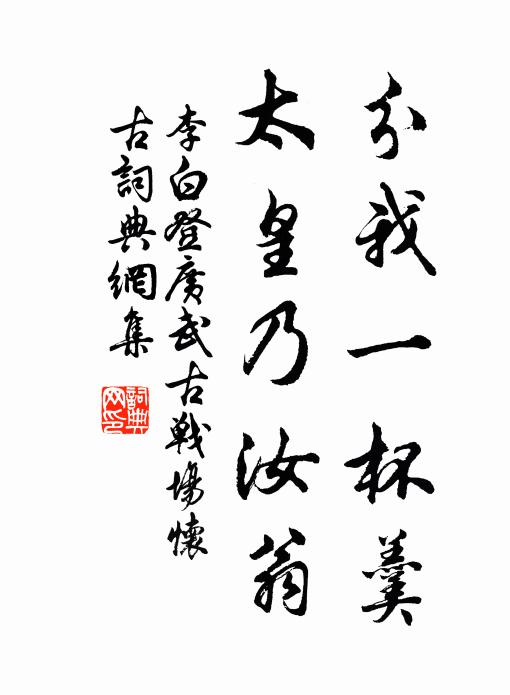 分我一杯羹
太皇乃汝翁
李白登廣武古戰場懷
古詞典網集
詞典网印